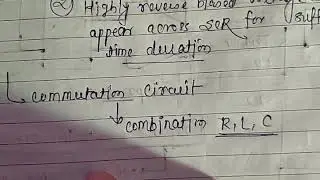 ② Highly reverse biased
appear across SCR for suff
time duration
commutation circuit
combination R, L, C